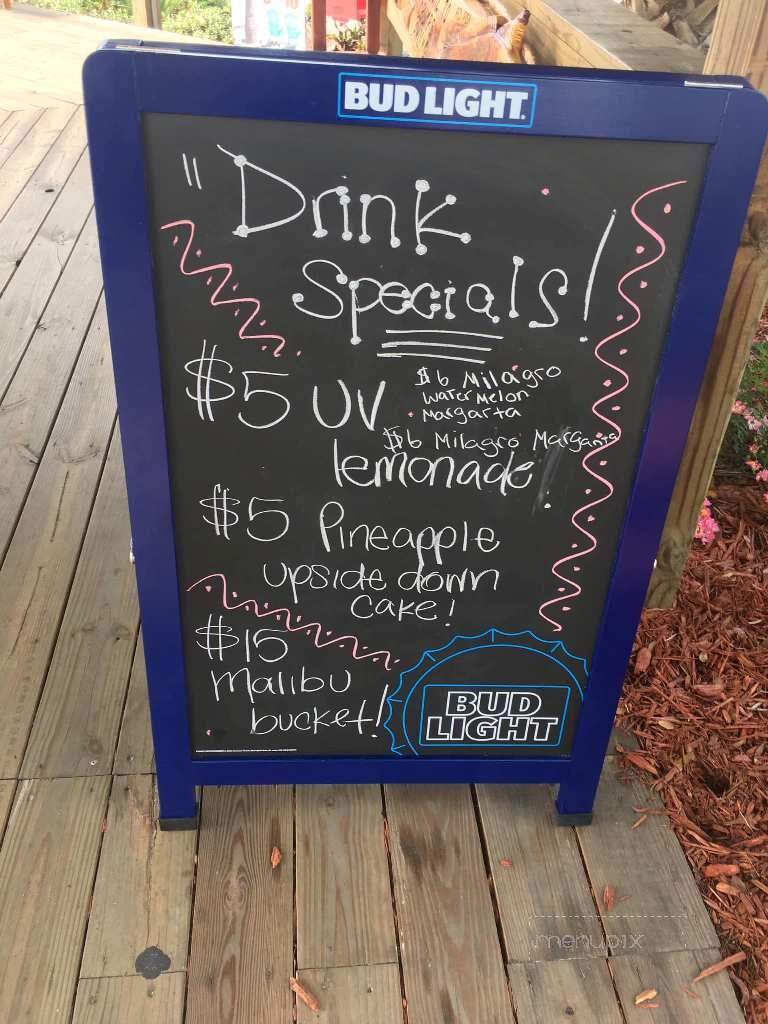 BUD LIGHT.
"Drink
Specials!
$5 UV
lemonade
$6 Milagro
Watermelon
Margarta
$6 Milagro Margarita
$5 Pineapple
upside down
cake!
$15
Malibu
bucket!
BUD
LIGHT
menupix